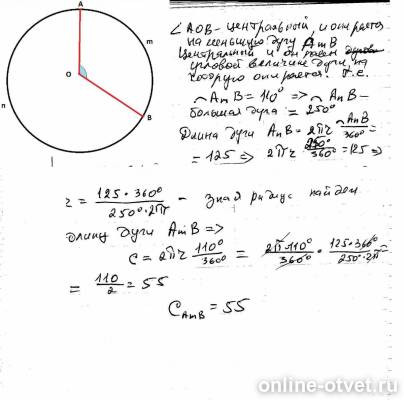 A
m
O
n
B
∠ AOB - центральный, и опирается
на меньшую дугу AmB
Центральный и он равен
угловой величине дуги, на
которую опирается. Т.е.
◠AmB = 110° => ◠AnB -
большая дуга = 250°
Длина дуги AnB = 2πr ◠AnB/360° =
= 125 => 2πr 250°/360° = 125 =>
r = 125 · 360°/250° · 2π - зная радиус найдем
длину дуги AmB =>
C = 2πr 110°/360° = 2π · 110°/360° · 125 · 360°/250° · 2π =
= 110/2 = 55
C AmB = 55
online-otvet.ru